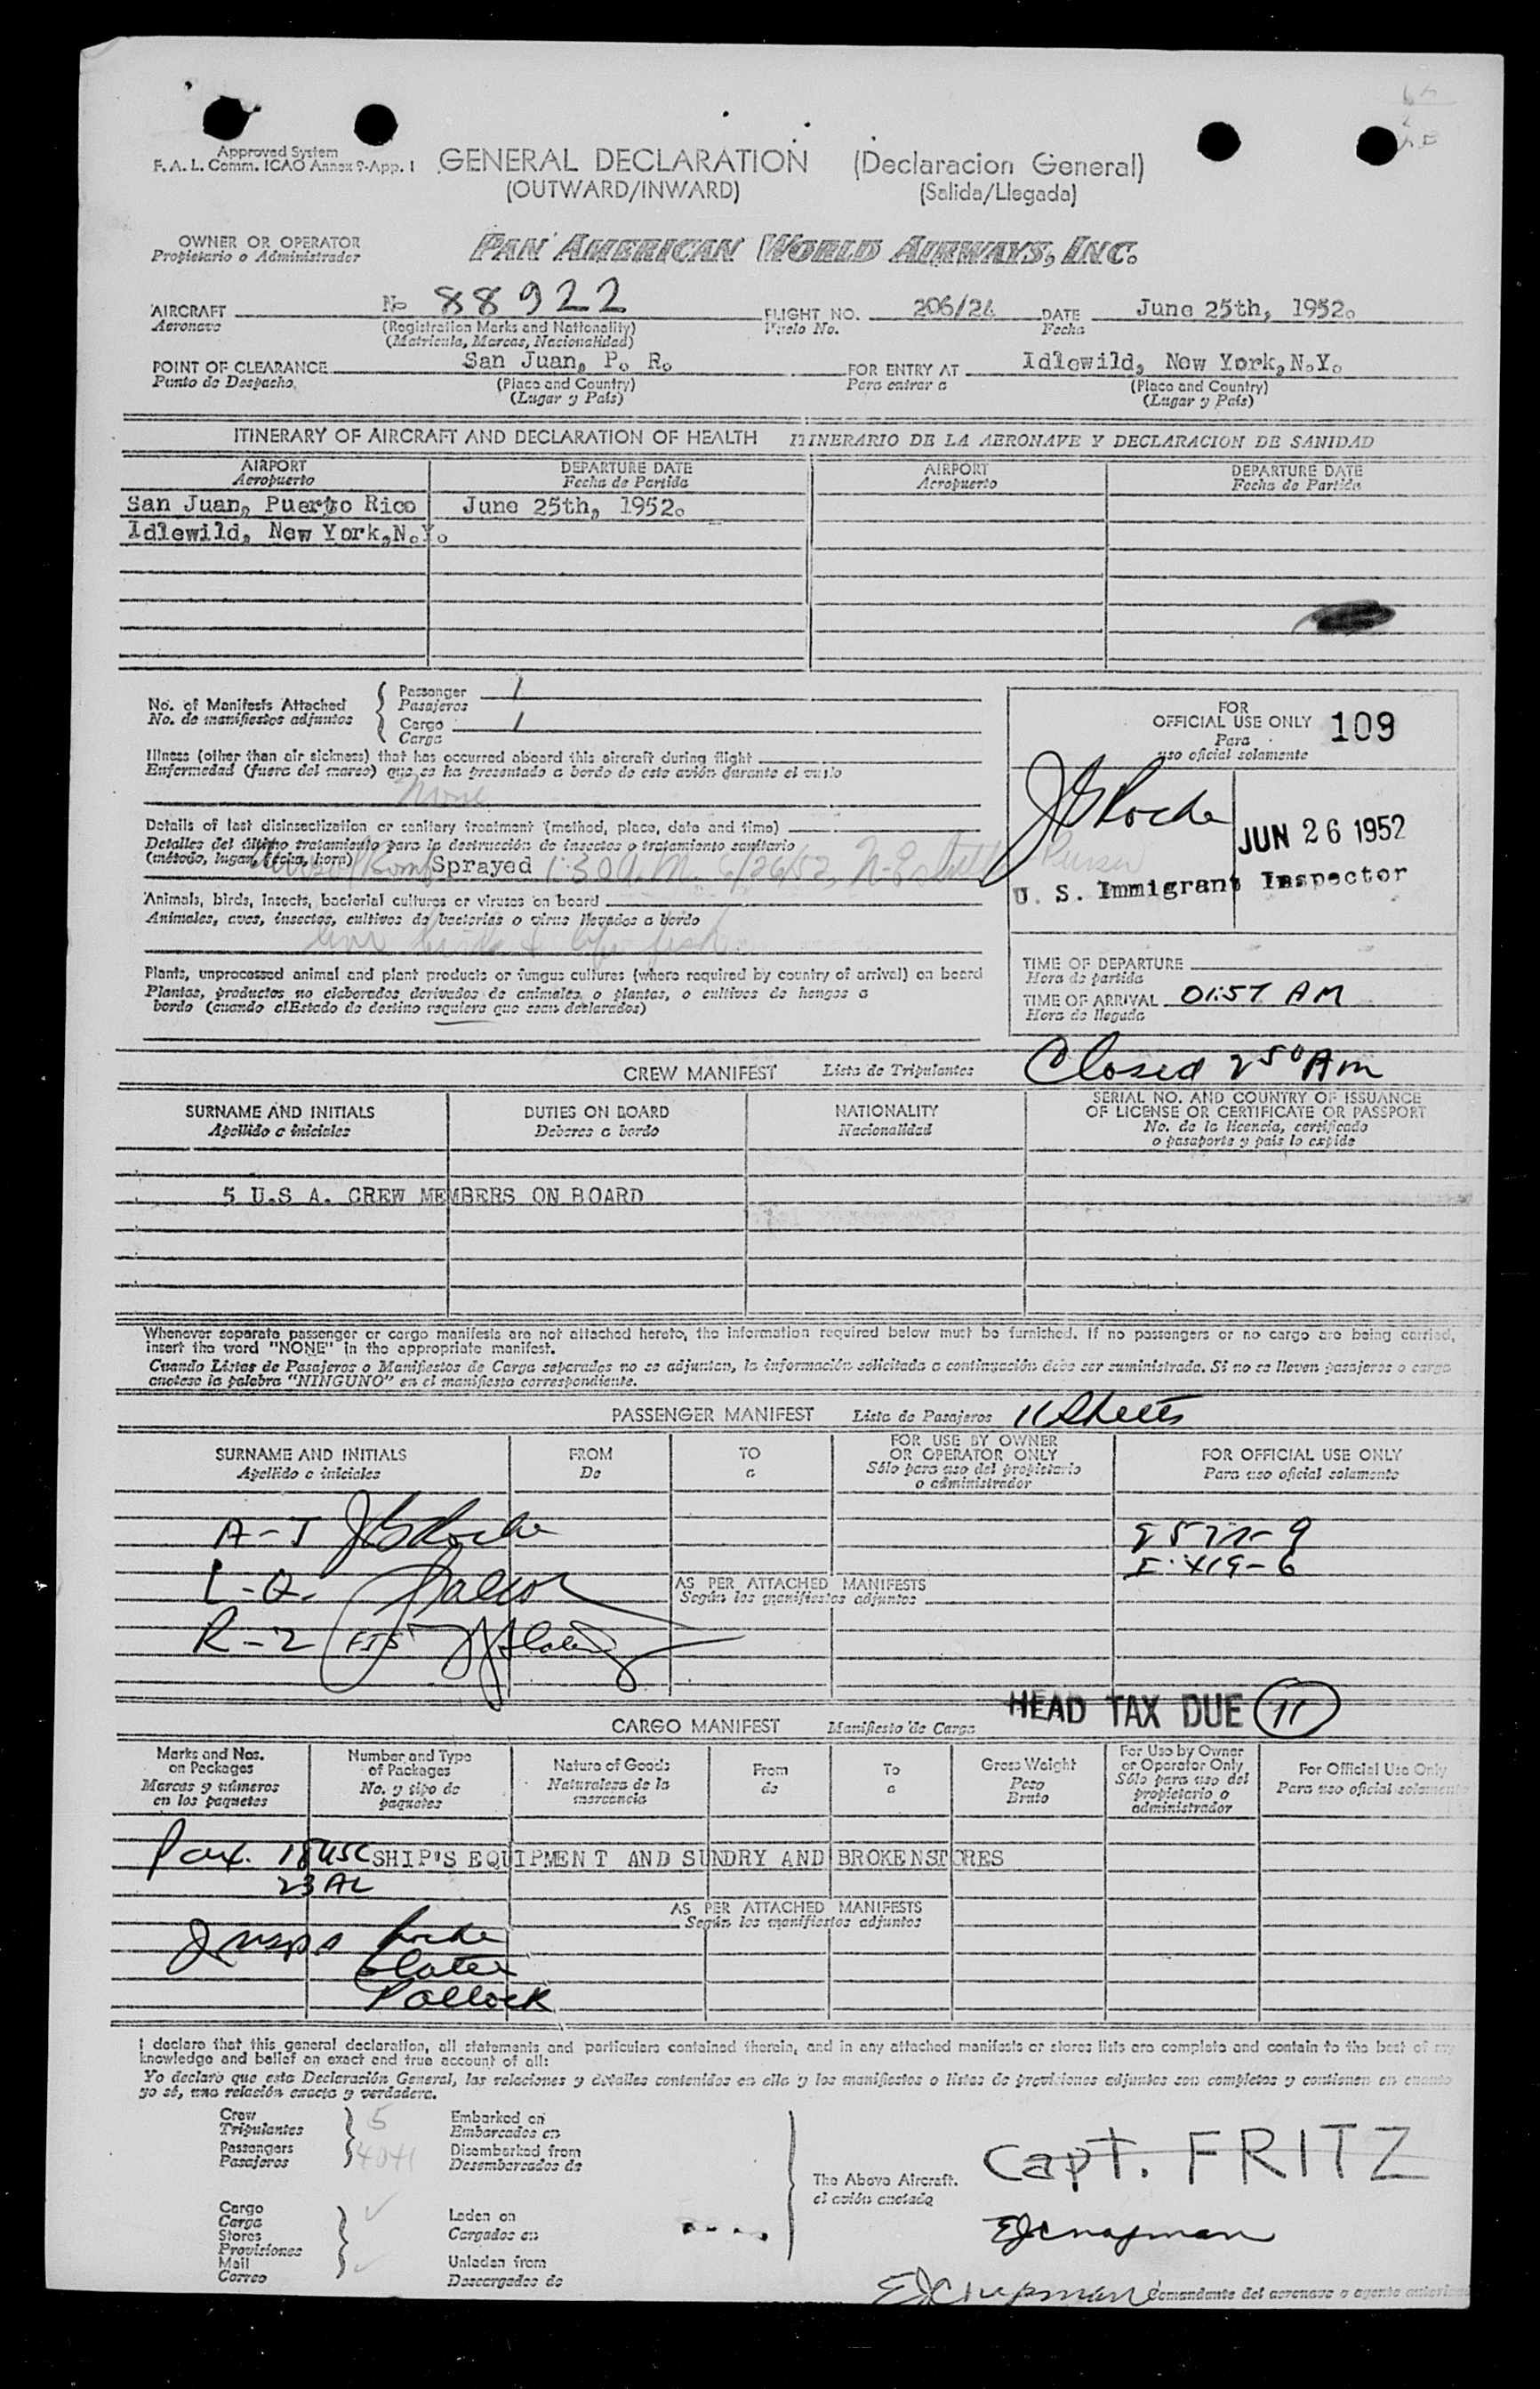 Approved System
F. A. L. Comm. ICAO Annex 9-App. 1
GENERAL DECLARATION (Declaracion General)
(OUTWARD/INWARD) (Salida/Llegada)
OWNER OR OPERATOR
Propietario o Administrador
PAN AMERICAN WORLD AIRWAYS, INC.
AIRCRAFT No 88922 FLIGHT NO. DATE June 25th, 1952.
Aeronave (Registration Marks and Nationality) Vuelo No. Fecha
(Matricula, Marcas, Nacionalidad)
POINT OF CLEARANCE San Juan, P. R. FOR ENTRY AT Idlewild, New York, N.Y.
Punto de Despacho, (Place and Country) Para entrar a (Place and Country)
(Lugar y País) (Lugar y País)
ITINERARY OF AIRCRAFT AND DECLARATION OF HEALTH ITINERARIO DE LA AERONAVE Y DECLARACION DE SANIDAD
AIRPORT DEPARTURE DATE AIRPORT DEPARTURE DATE
Aeropuerto Fecha de Partida Aeropuerto Fecha de Partida
San Juan, Puerto Rico June 25th, 1952.
Idlewild, New York,N.Y.
No. of Manifests Attached
No. de manifiestos adjuntos
Passenger 1
Pasajeros
Cargo 1
Carga
FOR
OFFICIAL USE ONLY 109
Para
uso oficial solamente
Illness (other than air sickness) that has occurred aboard this aircraft during flight
Enfermedad (fuera del mareo) que se ha presentado a bordo de este avión durante el vuelo
None
Details of last disinsectization or sanitary treatment (method, place, date and time)
Detalles del último tratamiento para la destrucción de insectos o tratamiento sanitario
(método, lugar, fecha, hora)
Sprayed 1:30 A.M. 6/26/52 Purser
JGRoche
JUN 26 1952
U. S. Immigrant Inspector
Animals, birds, insects, bacterial cultures or viruses on board
Animales, aves, insectos, cultivos de bacterias o virus llevados a bordo
Plants, unprocessed animal and plant products or fungus cultures (where required by country of arrival) on board
Plantas, productos no elaborados derivados de animales o plantas, o cultivos de hongos a
bordo (cuando elEstado de destino requiera que sean declarados)
TIME OF DEPARTURE
Hora de partida
TIME OF ARRIVAL 01:57 AM
Hora de llegada
Closed 2 50 Am
CREW MANIFEST Lista de Tripulantes
SURNAME AND INITIALS DUTIES ON BOARD NATIONALITY SERIAL NO. AND COUNTRY OF ISSUANCE
OF LICENSE OR CERTIFICATE OR PASSPORT
Apellido e iniciales Deberes a bordo Nacionalidad No. de la licencia, certificado
o pasaporte y país lo expide
5 U.S A. CREW MEMBERS ON BOARD
Whenever separate passenger or cargo manifests are not attached hereto, the information required below must be furnished. If no passengers or no cargo are being carried,
insert the word "NONE" in the appropriate manifest.
Cuando Listas de Pasajeros o Manifiestos de Carga separados no se adjuntan, la información solicitada a continuación debe ser suministrada. Si no se lleven pasajeros o carga
anotese la palabra "NINGUNO" en el manifiesto correspondiente.
PASSENGER MANIFEST Lista de Pasajeros 11 Sheets
SURNAME AND INITIALS FROM TO FOR USE BY OWNER
OR OPERATOR ONLY FOR OFFICIAL USE ONLY
Apellido e iniciales De a Sólo para uso del propietario
o administrador Para uso oficial solamente
A-J JGRoche
L-Q.
R-Z
AS PER ATTACHED MANIFESTS
Según los manifiestos adjuntos
HEAD TAX DUE 11
CARGO MANIFEST Manifiesto de Carga
Marks and Nos.
on Packages
Marcas y números
en los paquetes
Number and Type
of Packages
No. y tipo de
paquetes
Nature of Goods
Naturaleza de la
mercancia
From
de
To
a
Gross Weight
Peso
Bruto
For Use by Owner
or Operator Only
Sólo para uso del
propietario o
administrador
For Official Use Only
Para uso oficial solamente
Pax. 18 USC SHIP'S EQUIPMENT AND SUNDRY AND BROKENSTORES
23 AL
AS PER ATTACHED MANIFESTS
Según los manifiestos adjuntos
Insps Roche
Slater
Pollock
I declare that this general declaration, all statements and particulars contained therein, and in any attached manifests or stores lists are complete and contain to the best of my
knowledge and belief an exact and true account of all:
Yo declaro que esta Declaración General, las relaciones y detalles contenidos en ella y los manifiestos o listas de provisiones adjuntos son completos y contienen en cuanto
yo sé, una relación exacta y verdadera.
Crew 5
Tripulantes
Passengers
Pasajeros
Embarked on
Embarcados en
Disembarked from
Desembarcados de
Cargo
Carga
Stores
Provisiones
Mail
Correo
Laden on
Cargados en
Unladen from
Descargados de
The Above Aircraft.
el avión anotado
Capt. FRITZ
EJChapman
EJChapman
Comandante del aeronave o agente